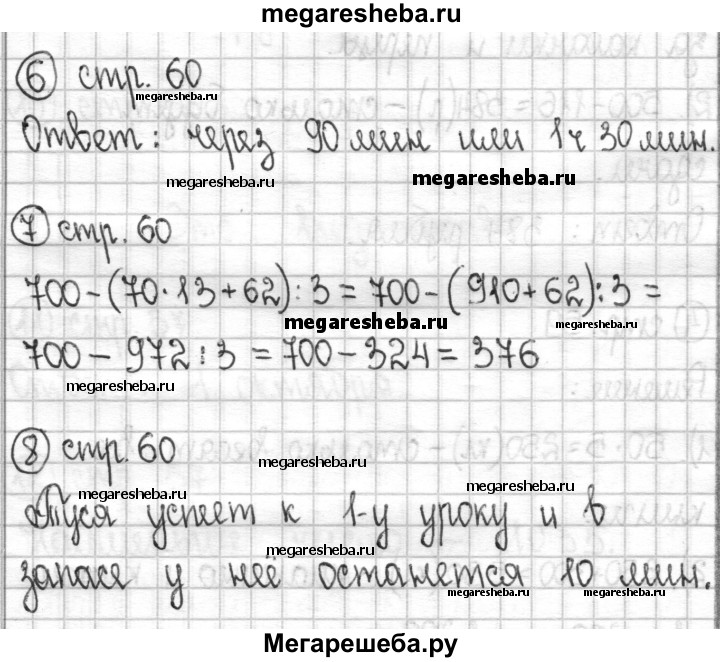 megaresheba.ru
6 стр. 60
megaresheba.ru
Ответ: через 90 мин или 1 ч 30 мин.
megaresheba.ru megaresheba.ru
7 стр. 60
700-(70·13+62):3=700-(910+62):3=
megaresheba.ru
700-972:3=700-324=376
megaresheba.ru
8 стр. 60
megaresheba.ru
megaresheba.ru megaresheba.ru
Туся успеет к 1-у уроку и в
megaresheba.ru
запасе у неё останется 10 мин.
megaresheba.ru megaresheba.ru
Мегарешеба.ру